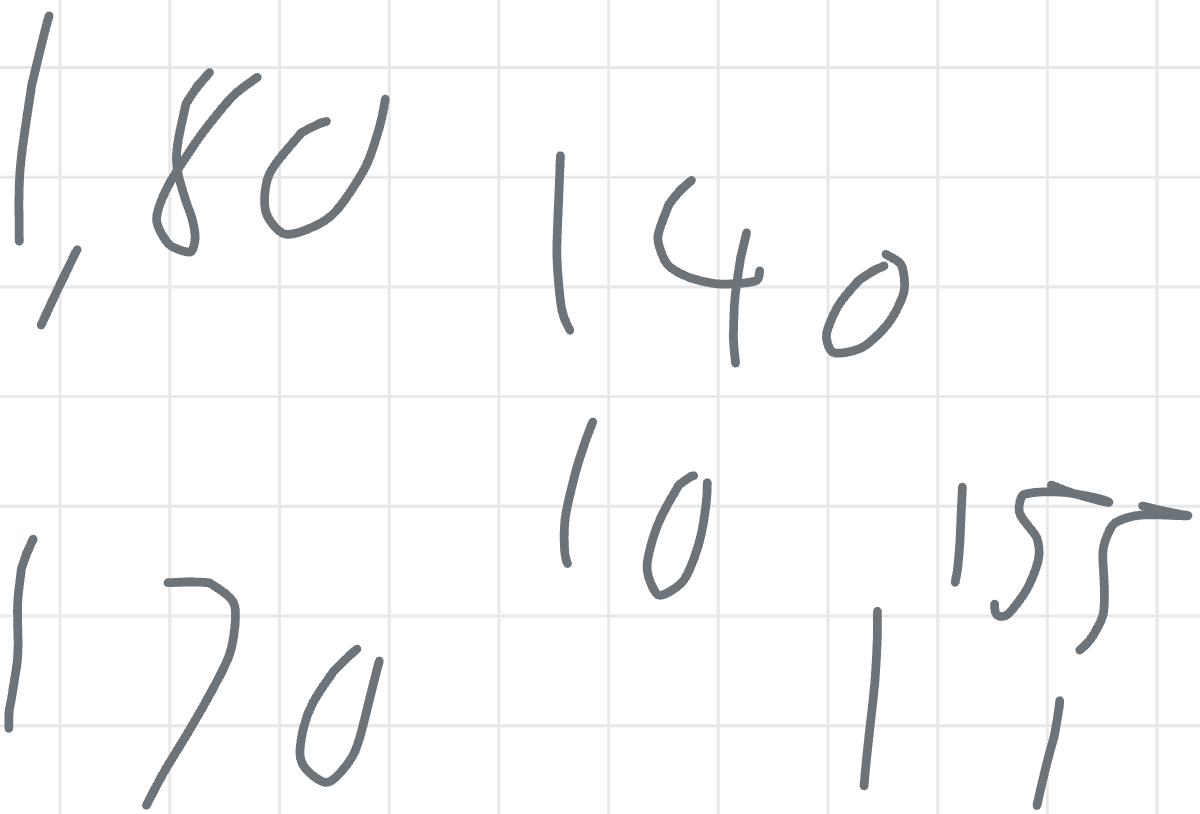 1,80
140
10
155
170
11